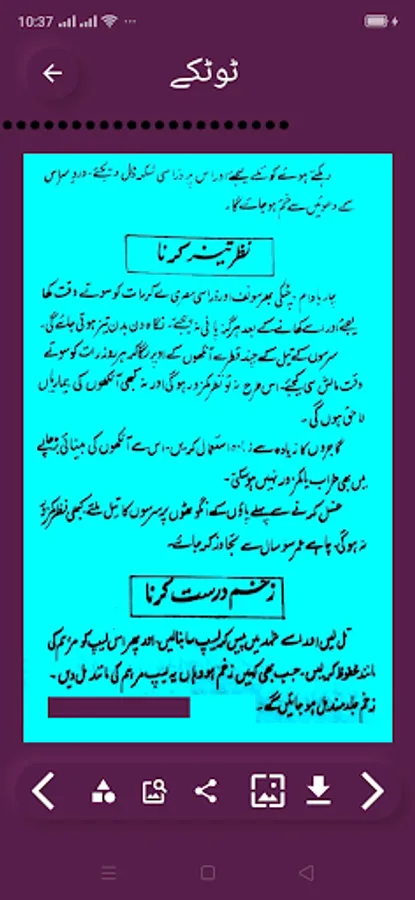 10:37
ٹوٹکے
دہکتے ہوئے کوئلے لیجئے اور اس پر ذرا سی ڈال دیجئے۔ درد سر اس
کے دھوئیں سے ختم ہو جائے گا۔
نظر تیز کرنا
چار بادام، چٹکی بھر سونف اور ذرا سی مصری لے کر رات کو سوتے وقت کھا
لیجئے اور اسے کھانے کے بعد ہرگز پانی نہ پیجئے۔ نگاہ دن بدن تیز ہوتی جائے گی۔
سرسوں کے تیل کے چند قطرے آنکھوں کے اوپر لگا کر ہر روز رات کو سوتے
وقت مالش کی کیجئے۔ اس طرح نہ تو نظر کمزور ہو گی اور نہ کبھی آنکھوں کی بیماریاں
لاحق ہوں گی۔
گاجروں کا زیادہ سے زیادہ استعمال کریں۔ اس سے آنکھوں کی بینائی بڑھاپے
میں بھی خراب یا کمزور نہیں ہو سکتی۔
غسل کرنے سے پہلے پاؤں کے انگوٹھوں پر سرسوں کا تیل ملئے کبھی نظر کمزور
نہ ہو گی، چاہے عمر سو سال سے تجاوز کر جائے۔
زخم درست کرنا
تل لیں اور اسے شہد میں پیس کر لیپ سا بنا لیں۔ اور پھر اس لیپ کو مرہم کی
مانند محفوظ کر لیں۔ جب بھی کہیں زخم ہو وہاں یہ لیپ مرہم کی مانند مل دیں۔
زخم جلد مندمل ہو جائیں گے۔